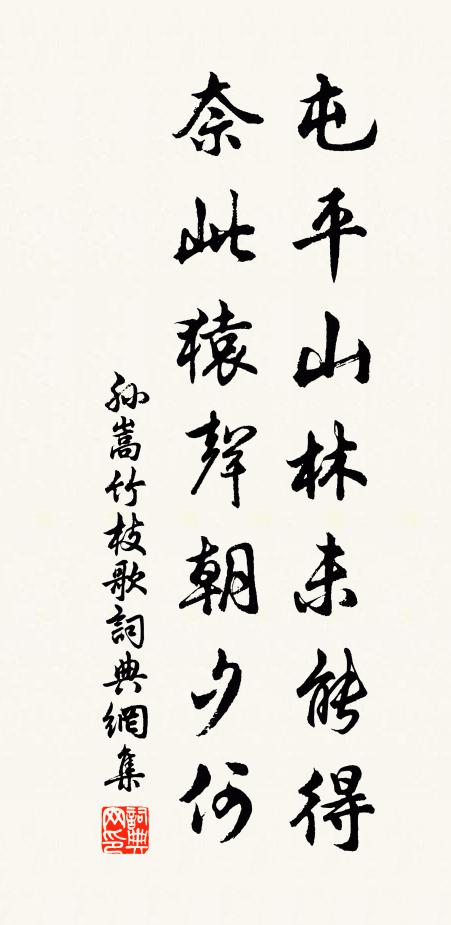 屯平山林未能得
奈此猿聲朝夕何
孫嵩竹枝歌詞典網集
詞典網印